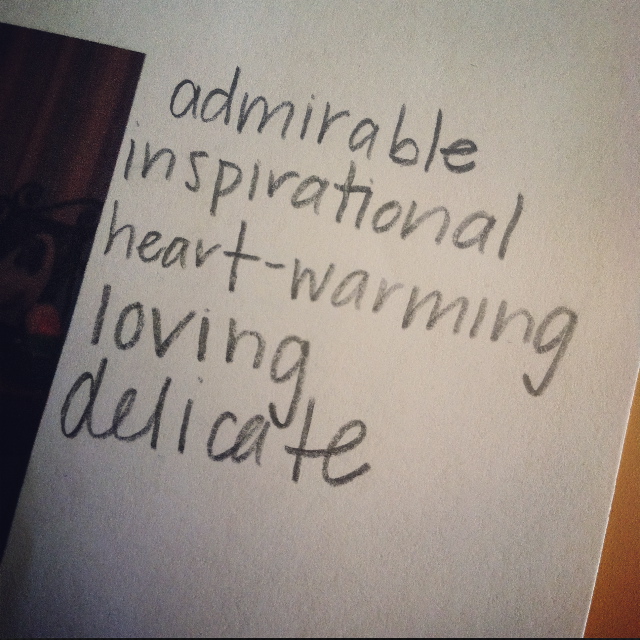 admirable
inspirational
heart-warming
loving
delicate